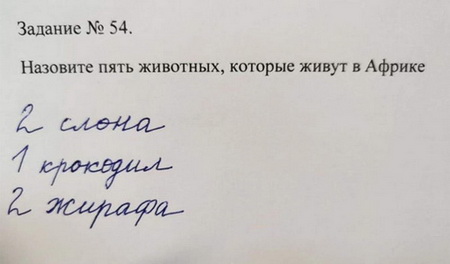 Задание № 54.
Назовите пять животных, которые живут в Африке
2 слона
1 крокодил
2 жирафа